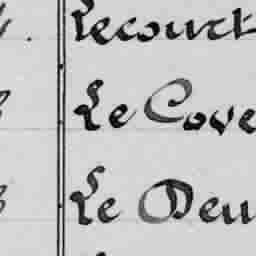 Lecourt
Le Cove
Le Deu